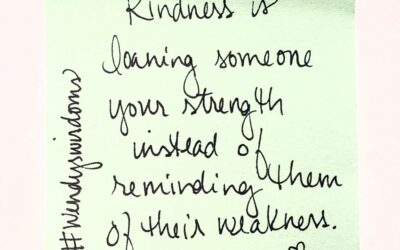 Kindness is
loaning someone
your strength
instead of
reminding them
of their weakness.
#wendyswisdoms